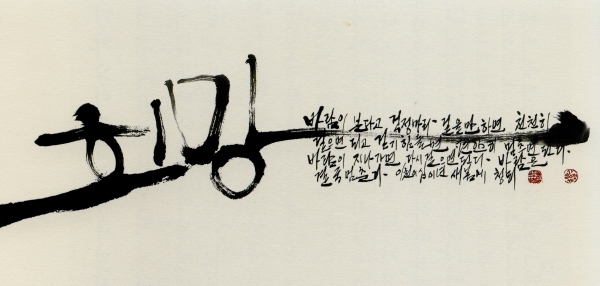 희망
바람이 분다고 걱정말라. 걸을만 하면 천천히
걸으면 되고 걷기 힘들면 멈추면 된다.
바람이 지나가면 다시 걸으면 된다. 바람은
결국 멈춘다. 새봄에 청티